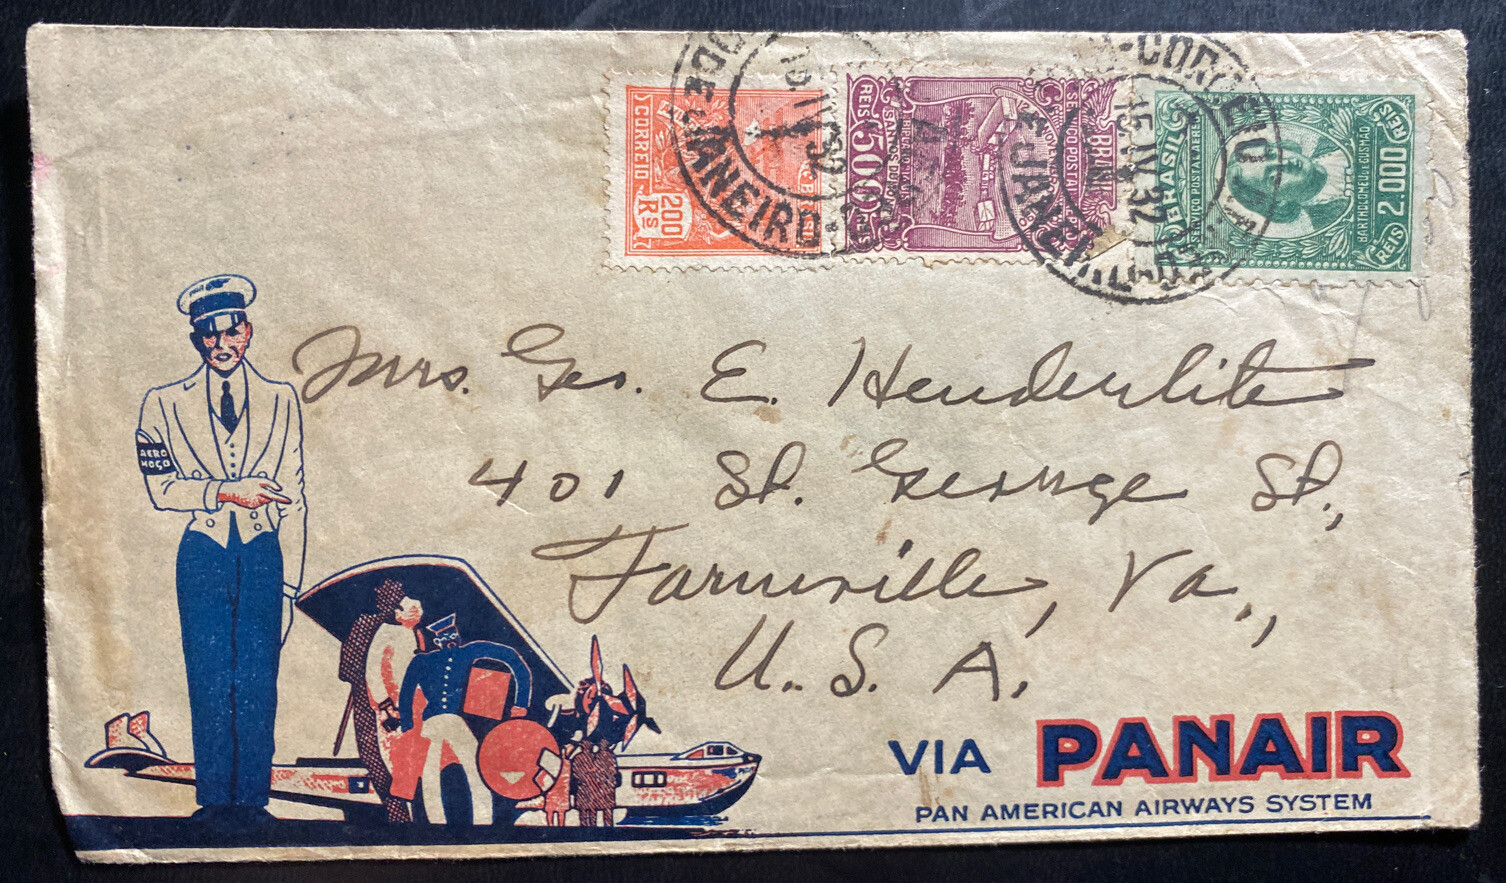 CORREIO
BRASIL
200
Rs
5000
REIS
BRASIL
SANTOS DUMONT
BRASIL
SERVIÇO POSTAL AEREO
BARTHOLOMEU DE GUSMÃO
REIS 2.000 REIS
DE JANEIRO
CORREIO
15 IV 32
E JANEIRO
Mrs. Geo. E. Henderlite
401 St. George St.,
Farmville, Va.,
U.S.A.
AERO
MOÇO
VIA PANAIR
PAN AMERICAN AIRWAYS SYSTEM